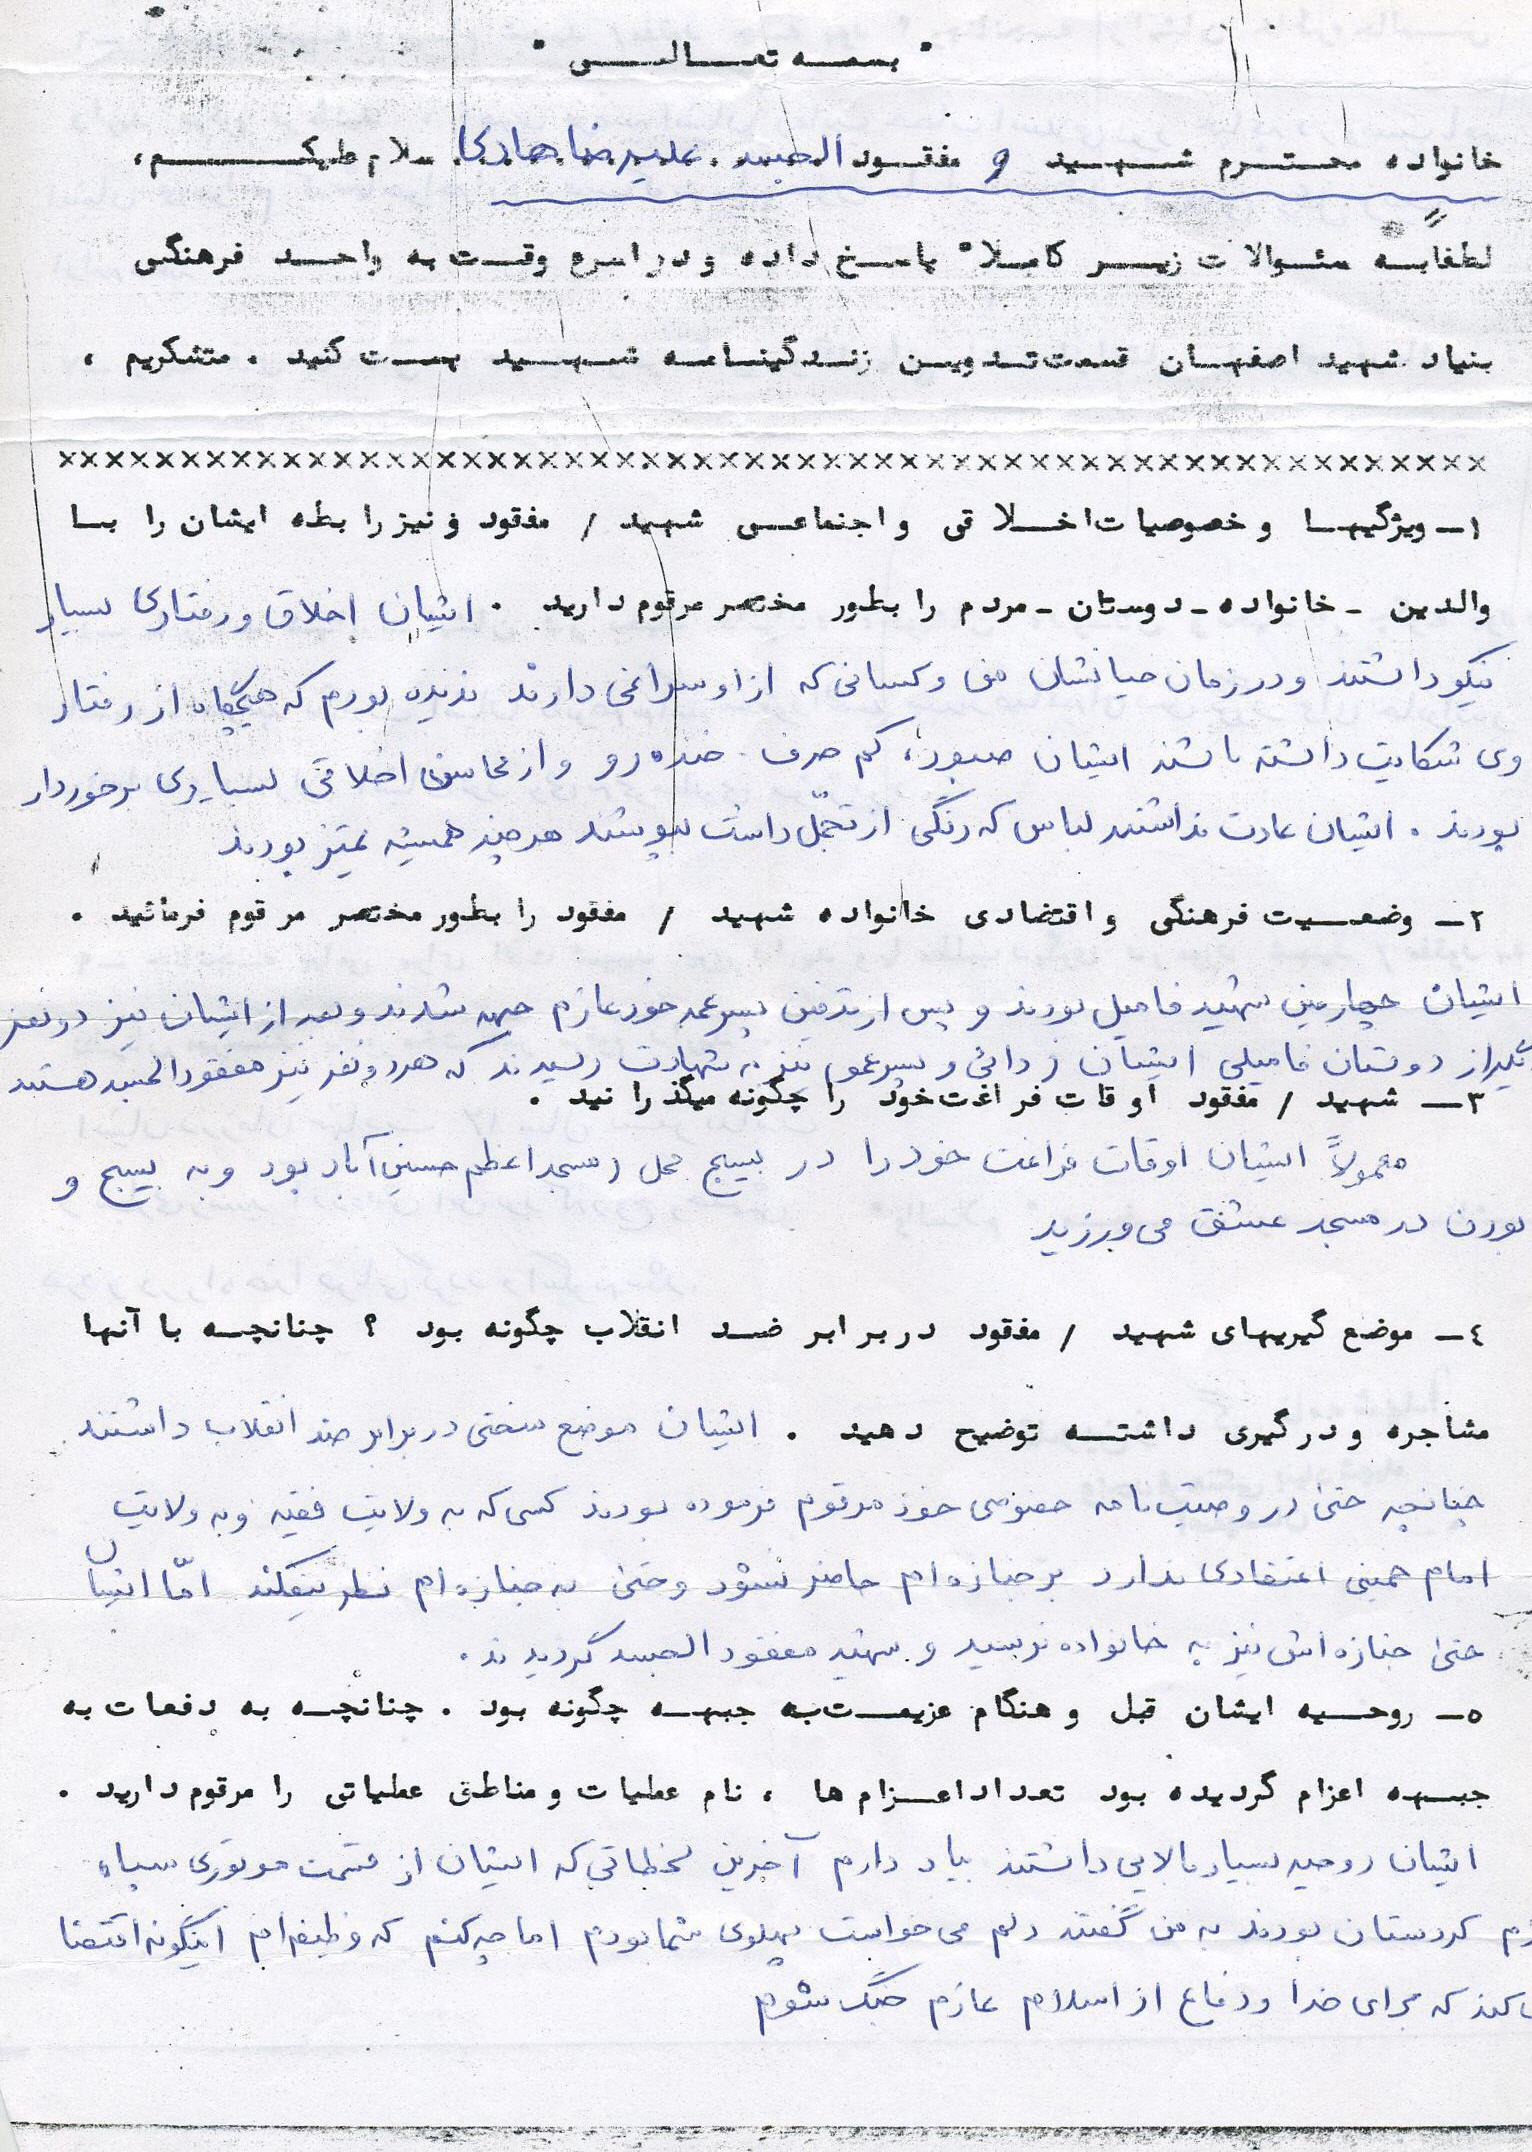 " بسمه تعالی "
خانواده محترم شهید و مفقود الجسد علیرضا هادی سلام علیکم،
لطفاً به سئوالات زیر کاملا" پاسخ داده و در اسرع وقت به واحد فرهنگی
بنیاد شهید اصفهان قسمت تدوین زندگینامه شهید پست کنید . متشکریم ،
××××××××××××××××××××××××××××××××××××××××××××××××××××××××
۱ـ ویژگیها و خصوصیات اخلاقی و اجتماعی شهید / مفقود و نیز رابطه ایشان را با
والدین ـ خانواده ـ دوستان ـ مردم را بطور مختصر مرقوم دارید . ایشان اخلاق و رفتاری بسیار
نیکو داشتند و در زمان حیاتشان من و کسانی که از او سراغی دارند ندیده بودم که هیچگاه از رفتار
وی شکایت داشته باشند ایشان صبور، کم حرف . خنده رو و از محاسن اخلاقی بسیاری برخوردار
بودند . ایشان عادت نداشتند لباس که رنگی از تجمّل داشت بپوشند هر چند همیشه تمیز بودند
۲ـ وضعیت فرهنگی و اقتصادی خانواده شهید / مفقود را بطور مختصر مرقوم فرمائید .
ایشان چهارمین شهید فامیل بودند و پس از تدفین پسرعمه خود عازم جبهه شدند و بعد از ایشان نیز دو نفر
دیگر از دوستان فامیلی ایشان ( دائی و پسرعمو نیز به شهادت رسیدند که هر دو نفر نیز مفقودالجسد هستند
۳ـ شهید / مفقود اوقات فراغت خود را چگونه میگذرانید .
معمولاً ایشان اوقات فراغت خود را در بسیج محل ( مسجد اعظم حسین آباد بود و به بسیج و
بودن در مسجد عشق می ورزید
٤ـ موضع گیریهای شهید / مفقود در برابر ضد انقلاب چگونه بود ؟ چنانچه با آنها
مشاجره و درگیری داشته توضیح دهید . ایشان موضع سختی در برابر ضد انقلاب داشتند
چنانچه حتی در وصیت نامه خصوصی خود مرقوم فرموده بودند کسی که به ولایت فقیه و به ولایت
امام خمینی اعتقادی ندارد بر جنازه ام حاضر نشود و حتی به جنازه ام نظر نیفکند امّا ایشان
حتی جنازه اش نیز به خانواده نرسید و شهید مفقود الجسد گردیدند .
٥ـ روحیه ایشان قبل و هنگام عزیمت به جبهه چگونه بود . چنانچه به دفعات به
جبهه اعزام گردیده بود تعداد اعزام ها ، نام عملیات و مناطق عملیاتی را مرقوم دارید .
ایشان روحیه بسیار بالایی داشتند بیاد دارم آخرین لحظاتی که ایشان از قسمت موتوری سپاه
عازم کردستان بودند به من گفتند دلم می خواست پهلوی شما بودم اما چه کنم که وظیفه ام اینگونه اقتضا
می کند که برای خدا و دفاع از اسلام عازم جنگ شوم